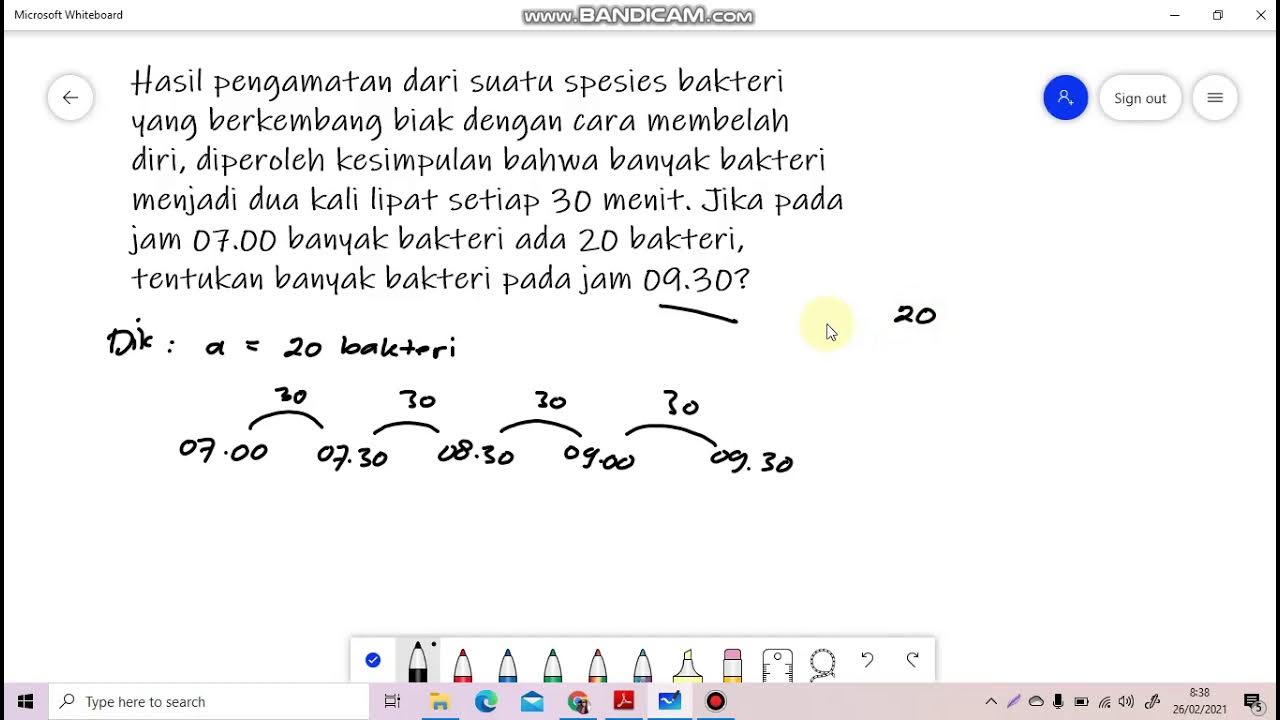 Microsoft Whiteboard
www.BANDICAM.com
Hasil pengamatan dari suatu spesies bakteri
yang berkembang biak dengan cara membelah
diri, diperoleh kesimpulan bahwa banyak bakteri
menjadi dua kali lipat setiap 30 menit. Jika pada
jam 07.00 banyak bakteri ada 20 bakteri,
tentukan banyak bakteri pada jam 09.30?
Sign out
20
Dik : a = 20 bakteri
30 30 30 30
07.00 07.30 08.30 09.00 09.30
Type here to search
8:38
26/02/2021
5